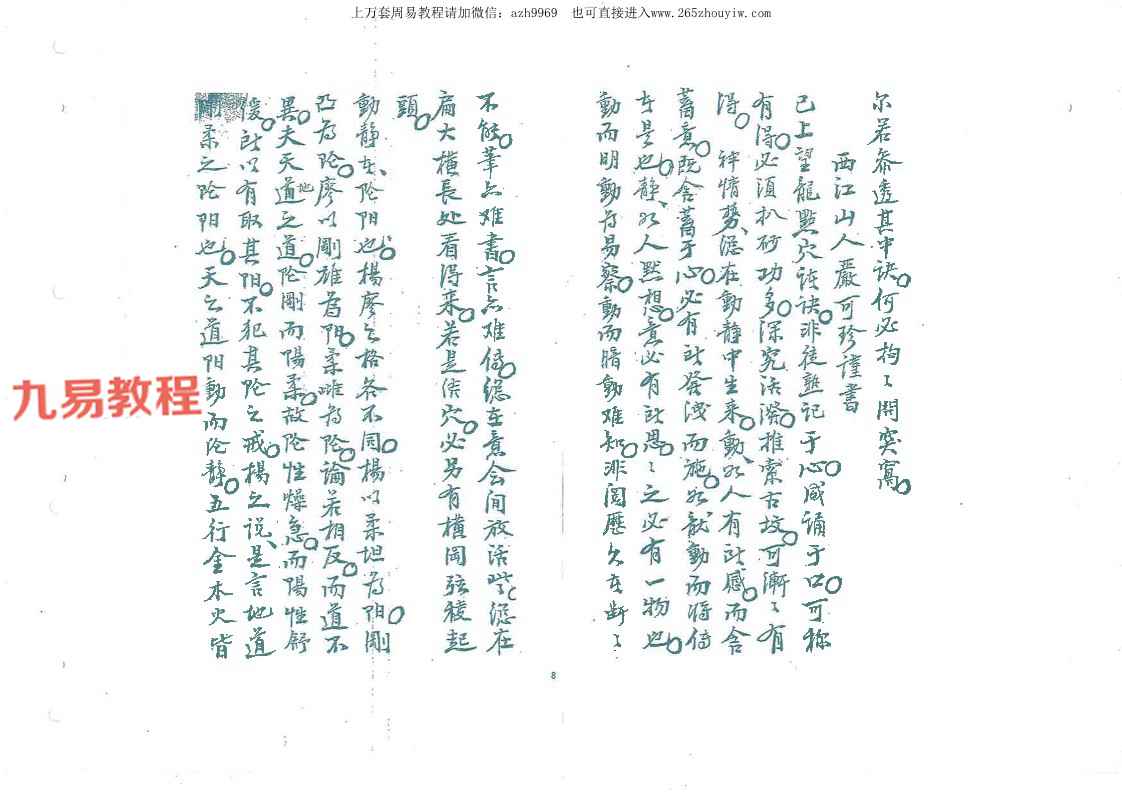 上万套周易教程请加微信: azh9969 也可直接进入www.265zhouyiw.com
尔若参透其中诀何必拘々開突窩
西江山人嚴可珍謹書
已上望龍點穴訣非徒熟記于心咸誦于口可称
有得必須扒砂功多深究法深推索古坟可漸々有
得 情勢總在動静中生來動如人有所感而含
蓄意既含蓄于心必有所發洩而施如龍動而將
在是也静如人默想意必有所思々之必有一物也
動而明動为易察動而暗動难知非閱歷久在断々
不能筆亦难書言亦难傳總在意会间放活 總在
扁大横長处看得来若是 穴必另有横岡弦稜起
頭
動静在陰阳也楊廖之格各不同楊以柔坦为阳剛
凸为陰廖以剛雄為阳柔雌为陰論若相反而道不
異夫天道地之道陰剛而陽柔故陰性燥急而陽性舒
緩所以有取其阳不犯其陰之戒楊之说是言地道
剛柔之陰阳也天之道阳動而陰静五行金木火皆
九易教程
8